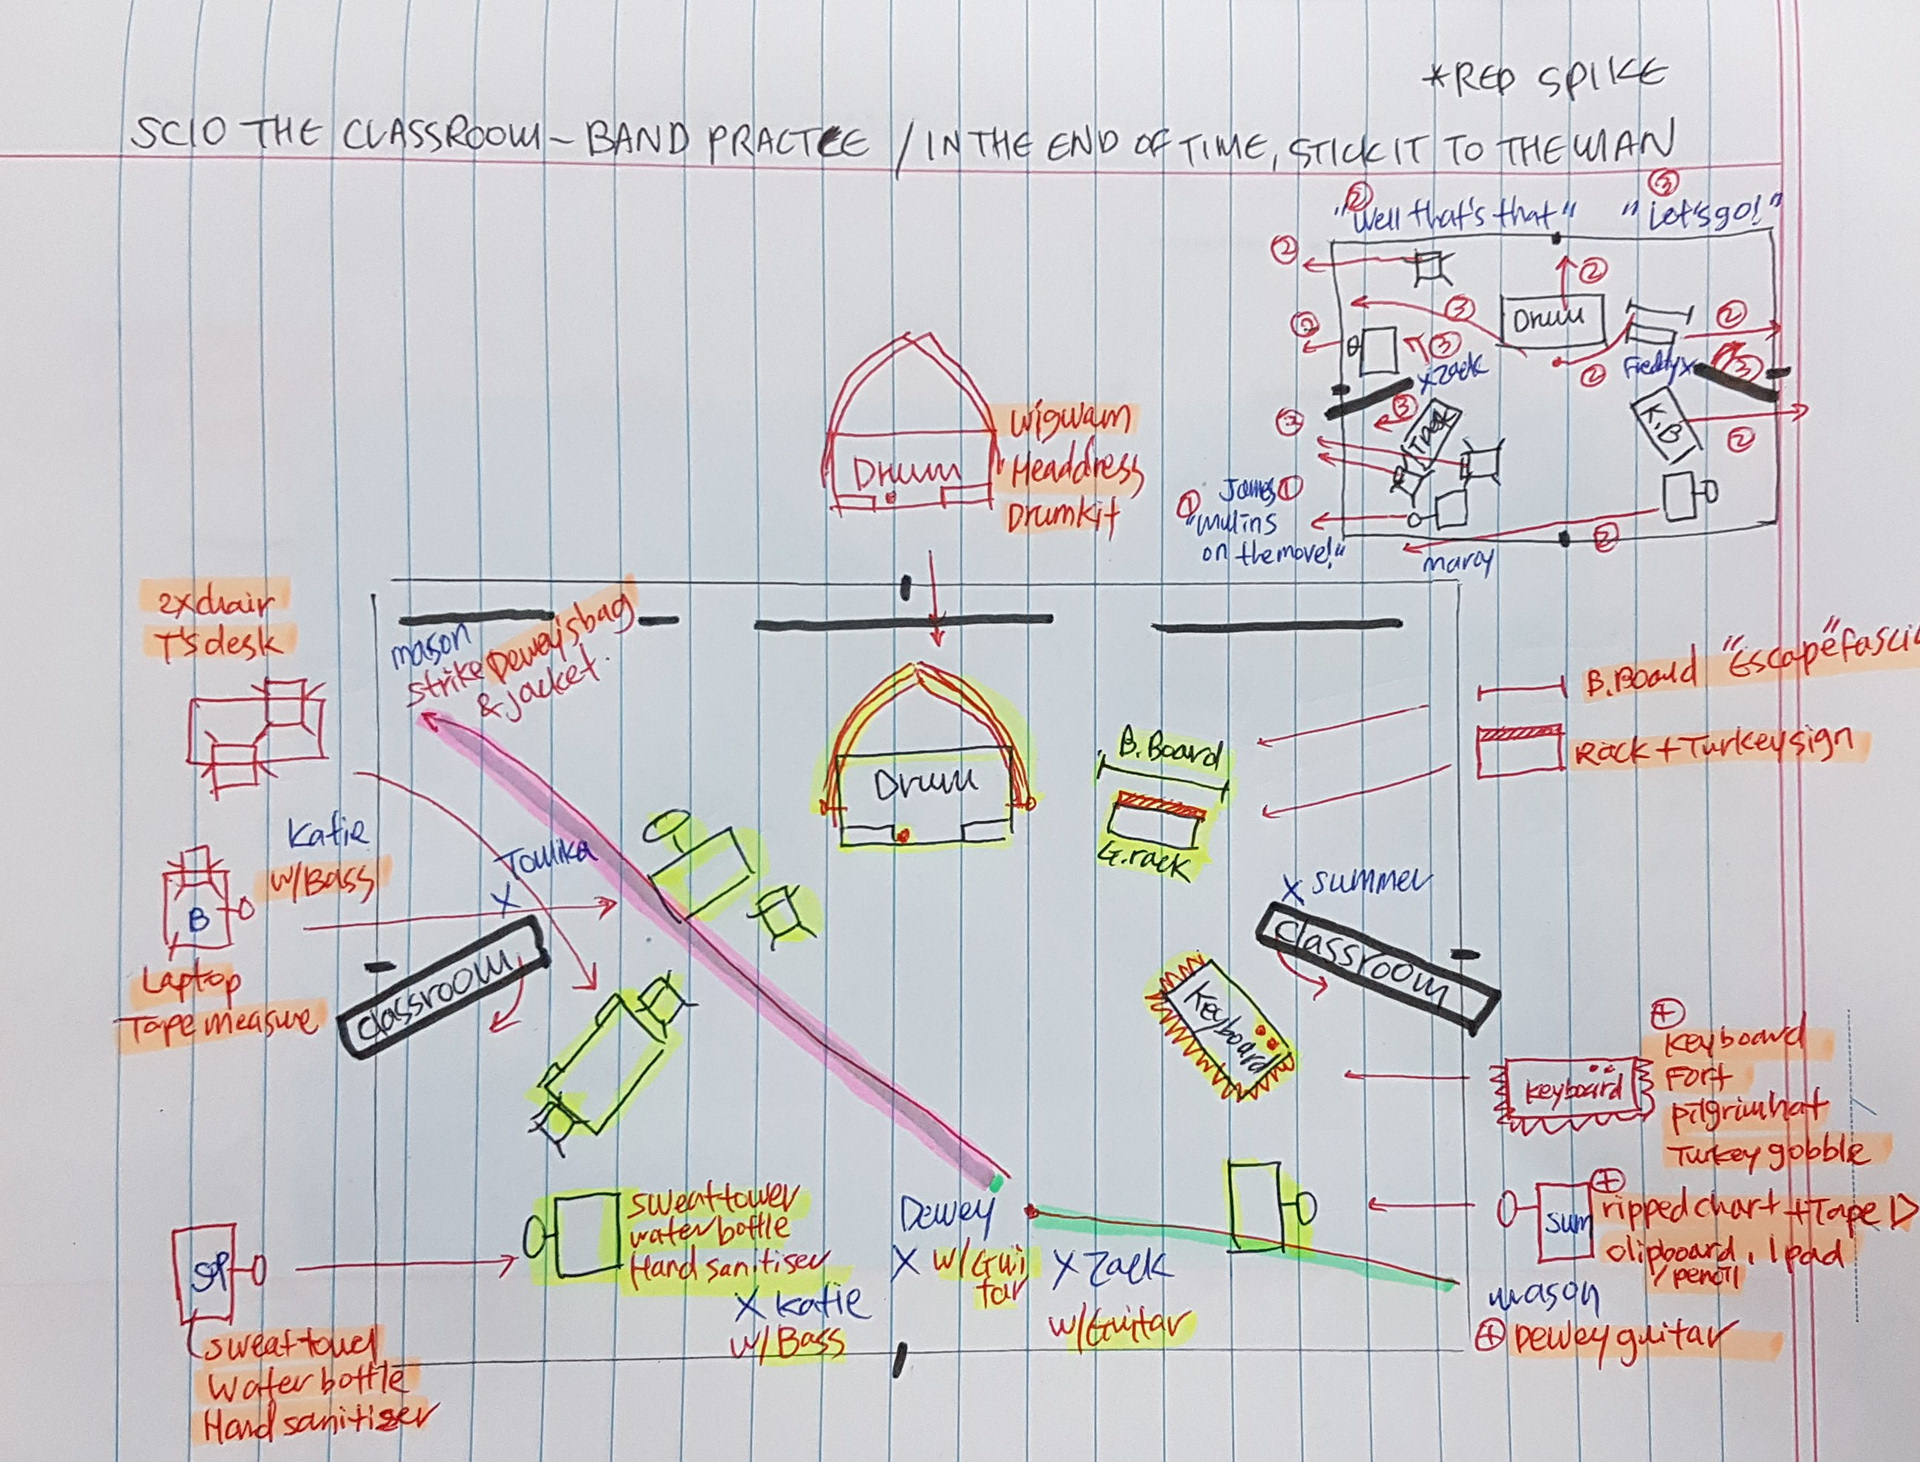 *RED SPIKE
SC10 THE CLASSROOM - BAND PRACTCE / IN THE END OF TIME, STICK IT TO THE MAN
② ③
"Well that's that" "Let's go!"
②
②
③
Drum
②
②
③
Zack
②
Freddy x
③
③
T'Desk
K.B
②
③
① James ①
"Mulins
on the move!"
②
Marcy
Wigwam
Headdress
Drumkit
Drum
2x chair
T's desk
mason
strike Dewey's bag
& jacket.
B.Board "Escape" fasci
Rack + Turkey sign
B.Board
G.rack
Drum
Katie
w/Bass
B
Laptop
Tape measure
Tomika
X
classroom
X summer
classroom
Keyboard
keyboard
⊕
Keyboard
Fort
pilgrim hat
Turkey gobble
Sum
⊕
ripped chart + Tape
clipboard, 1 pad
/ pencil
mason
⊕ Dewey guitar
sweat tower
water bottle
Hand sanitiser
X Katie
w/ Bass
Dewey
X w/Gui
tar
X Zack
w/Guitar
SP
sweat towel
Water bottle
Hand sanitizer